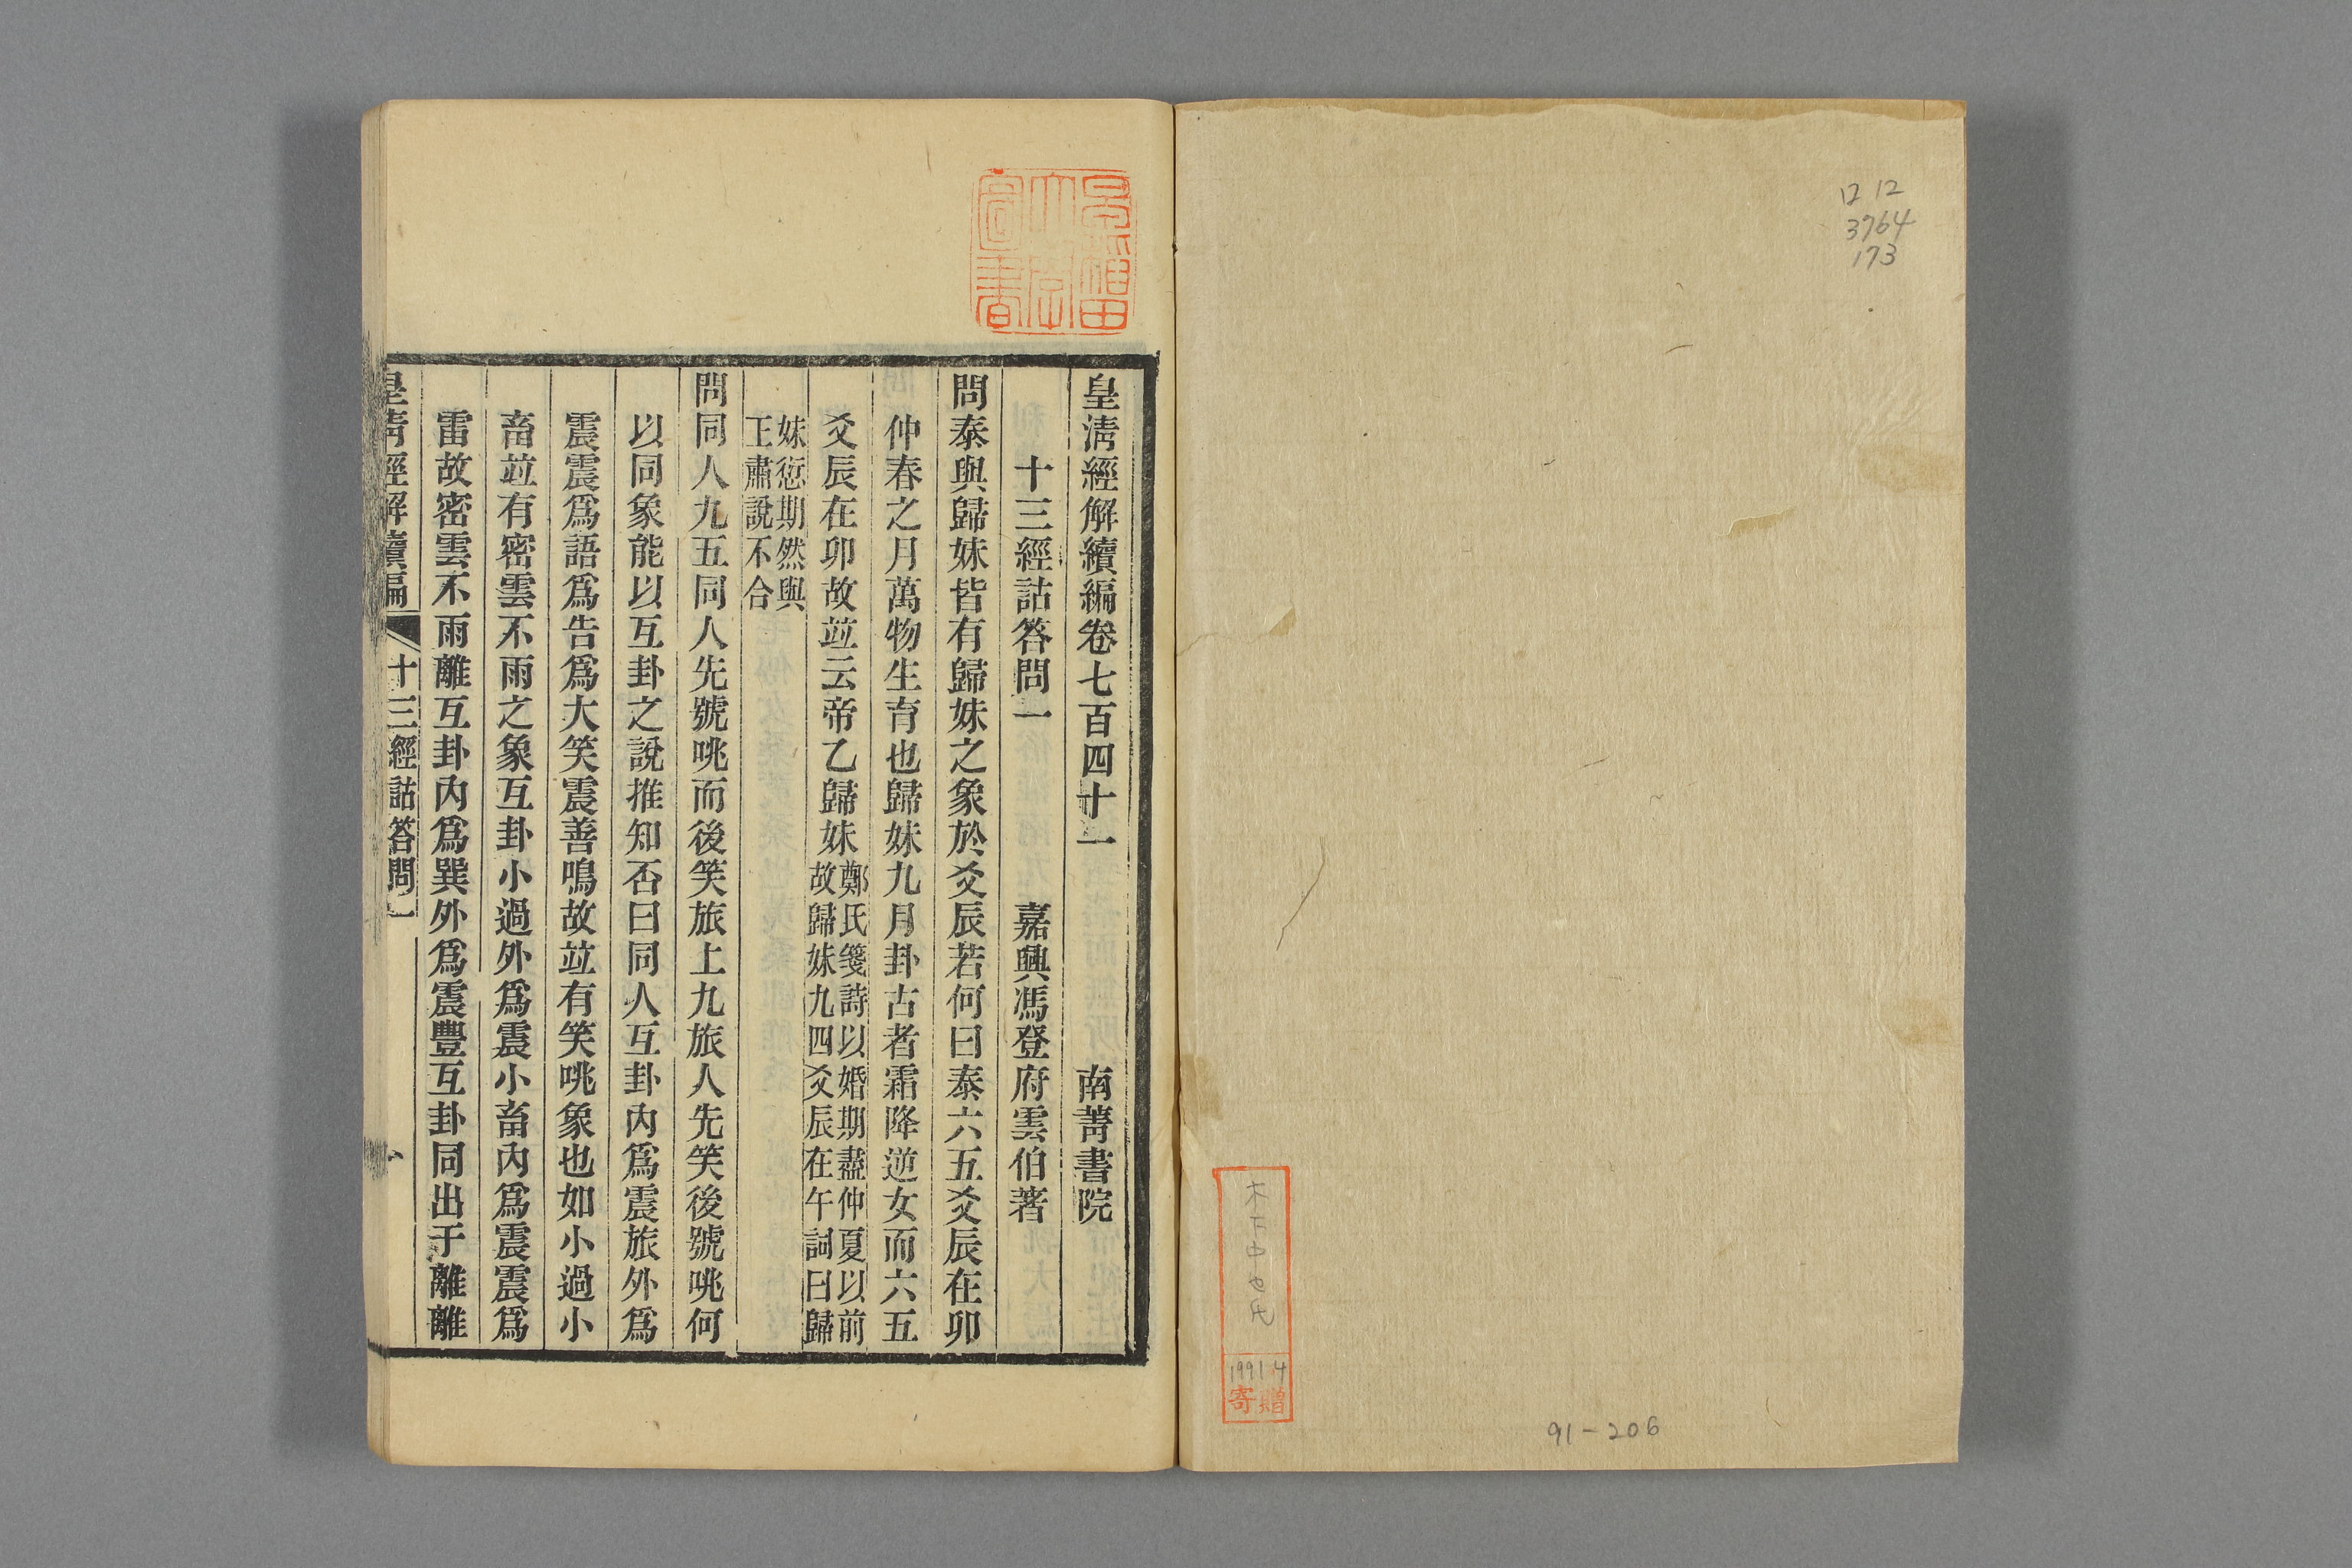 ロ12
3764
173
木下中也氏
1991 4
寄贈
91-206
早稲田大学図書
皇淸經解續編卷七百四十一 南菁書院
十三經詁答問一 嘉興馮登府雲伯著
問泰與歸妹皆有歸妹之象於爻辰若何曰泰六五爻辰在卯
仲春之月萬物生育也歸妹九月卦古者霜降逆女而六五
爻辰在卯故竝云帝乙歸妹鄭氏箋詩以婚期盡仲夏以前
故歸妹九四爻辰在午詞曰歸
妹愆期然與
王肅說不合
問同人九五同人先號咷而後笑旅上九旅人先笑後號咷何
以同象能以互卦之說推知否曰同人互卦內爲震旅外爲
震震爲語爲告爲大笑震善鳴故竝有笑咷象也如小過小
畜竝有密雲不雨之象互卦小過外爲震小畜內爲震震爲
雷故密雲不雨離互卦內爲巽外爲震豐互卦同出于離離
皇淸經解續編 十三經詁答問一